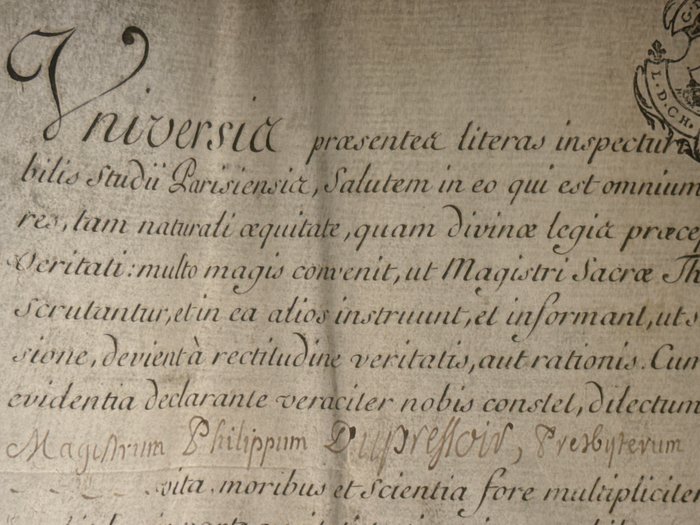 Vniversis præsentes literas inspectur
L.D.C.H.
bilis studii Parisiensis, Salutem in eo qui est omnium
res, tam naturali æquitate, quam divinæ legis præce
Veritati: multo magis convenit, ut Magistri Sacræ Th
scrutantur, et in ea alios instruunt, et informant, ut s
sione, devient à rectitudine veritatis, aut rationis. Cum
evidentia declarante veraciter nobis constet, dilectum
Magistrum Philippum Dupressoir, Presbyterum
vita, moribus et scientia fore multipliciter